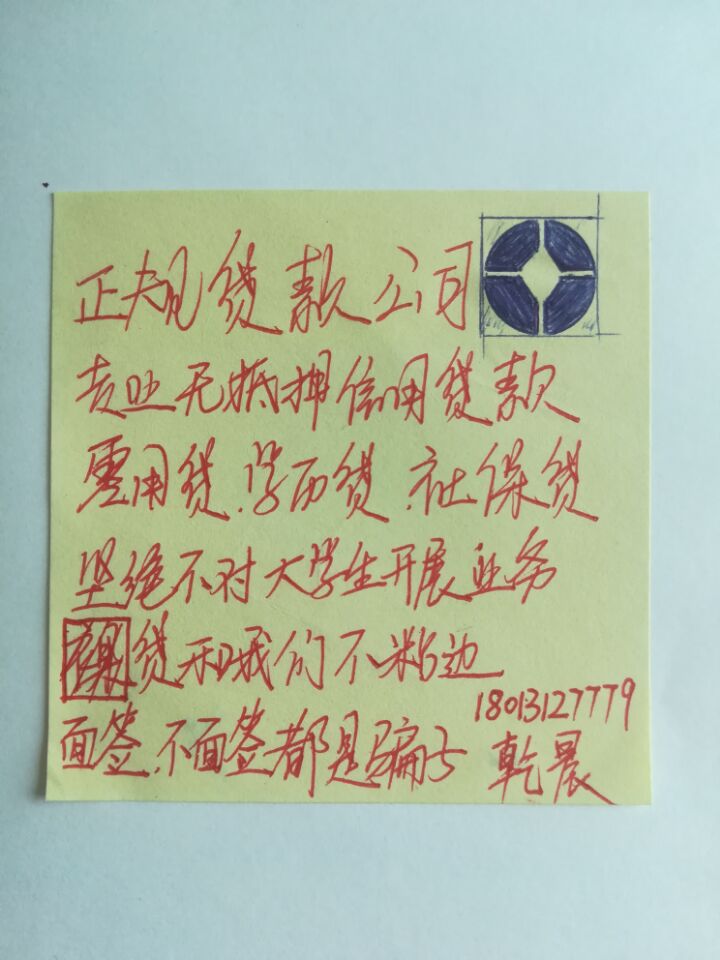 正规贷款公司
专业无抵押信用贷款
零用贷.学历贷.社保贷
坚绝不对大学生开展业务
裸贷和我们不粘边
18013127779
面签.不面签都是骗子 乾晨